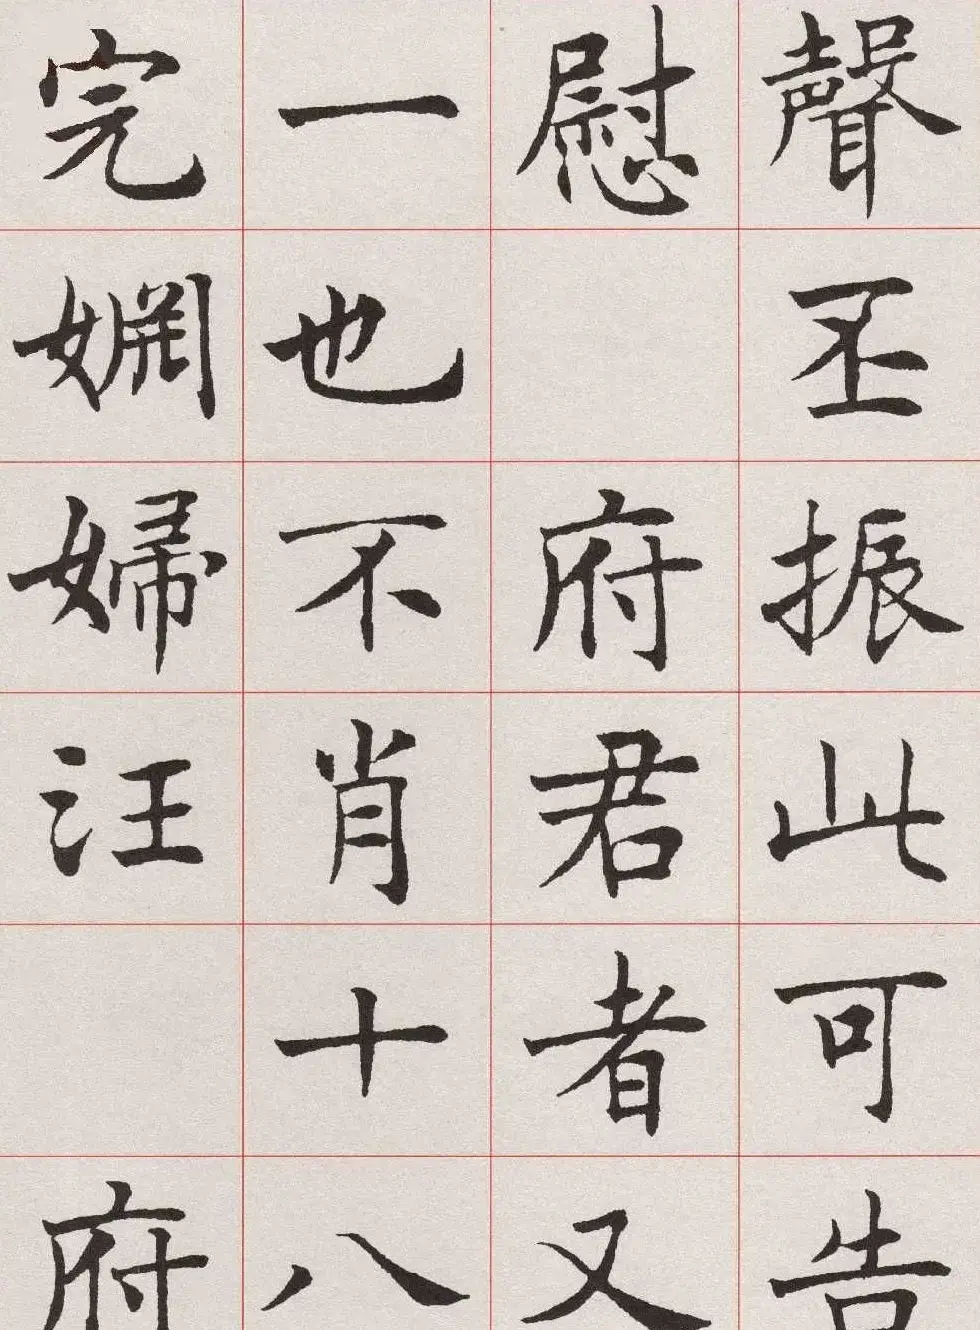 聲丕振此可告
慰 府君者又
一也不肖十八
完姻婦汪 府